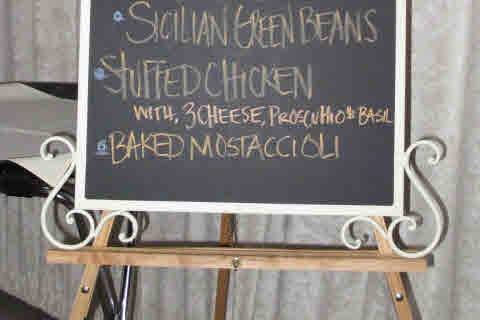 SICILIAN GREEN BEANS
STUFFED CHICKEN
WITH, 3 CHEESE, PROSCUTTIO & BASIL
BAKED MOSTACCIOLI